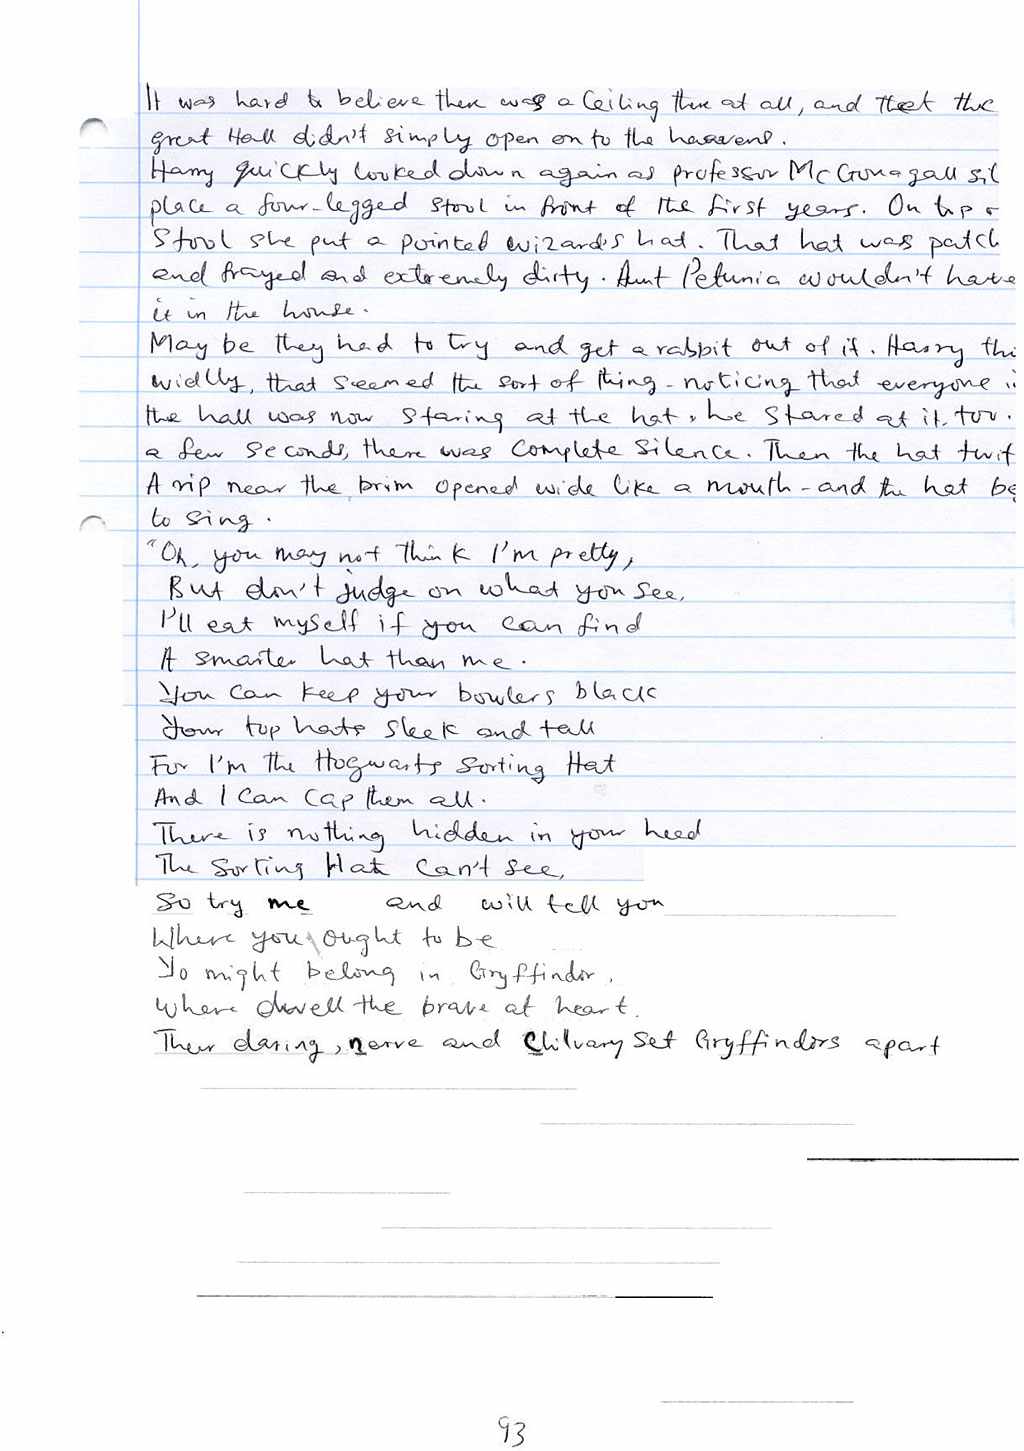 It was hard to believe there was a Ceiling there at all, and that the
great Hall didn't simply open on to the heavens.
Harry quickly looked down again as professor McGonagall sil
place a four-legged stool in front of the first years. On top o
Stool she put a pointed wizard's hat. That hat was patch
and frayed and extremely dirty. Aunt Petunia wouldn't have
it in the house.
May be they had to try and get a rabbit out of it. Harry thi
widlly, that seemed the sort of thing - noticing that everyone i
the hall was now staring at the hat, he stared at it. too.
a few seconds, there was complete silence. Then the hat twit
A rip near the brim opened wide like a mouth - and the hat be
to sing.
"Oh, you may not think I'm pretty,
But don't judge on what you see,
I'll eat myself if you can find
A smarter hat than me.
You can keep your bowlers black
Your top hats sleek and tall
For I'm the Hogwarts Sorting Hat
And I can cap them all.
There is nothing hidden in your head
The Sorting Hat can't see,
So try me and will tell you
Where you ought to be
Yo might belong in Gryffindor,
Where dwell the brave at heart.
Their daring, nerve and Chilvary set Gryffindors apart
93